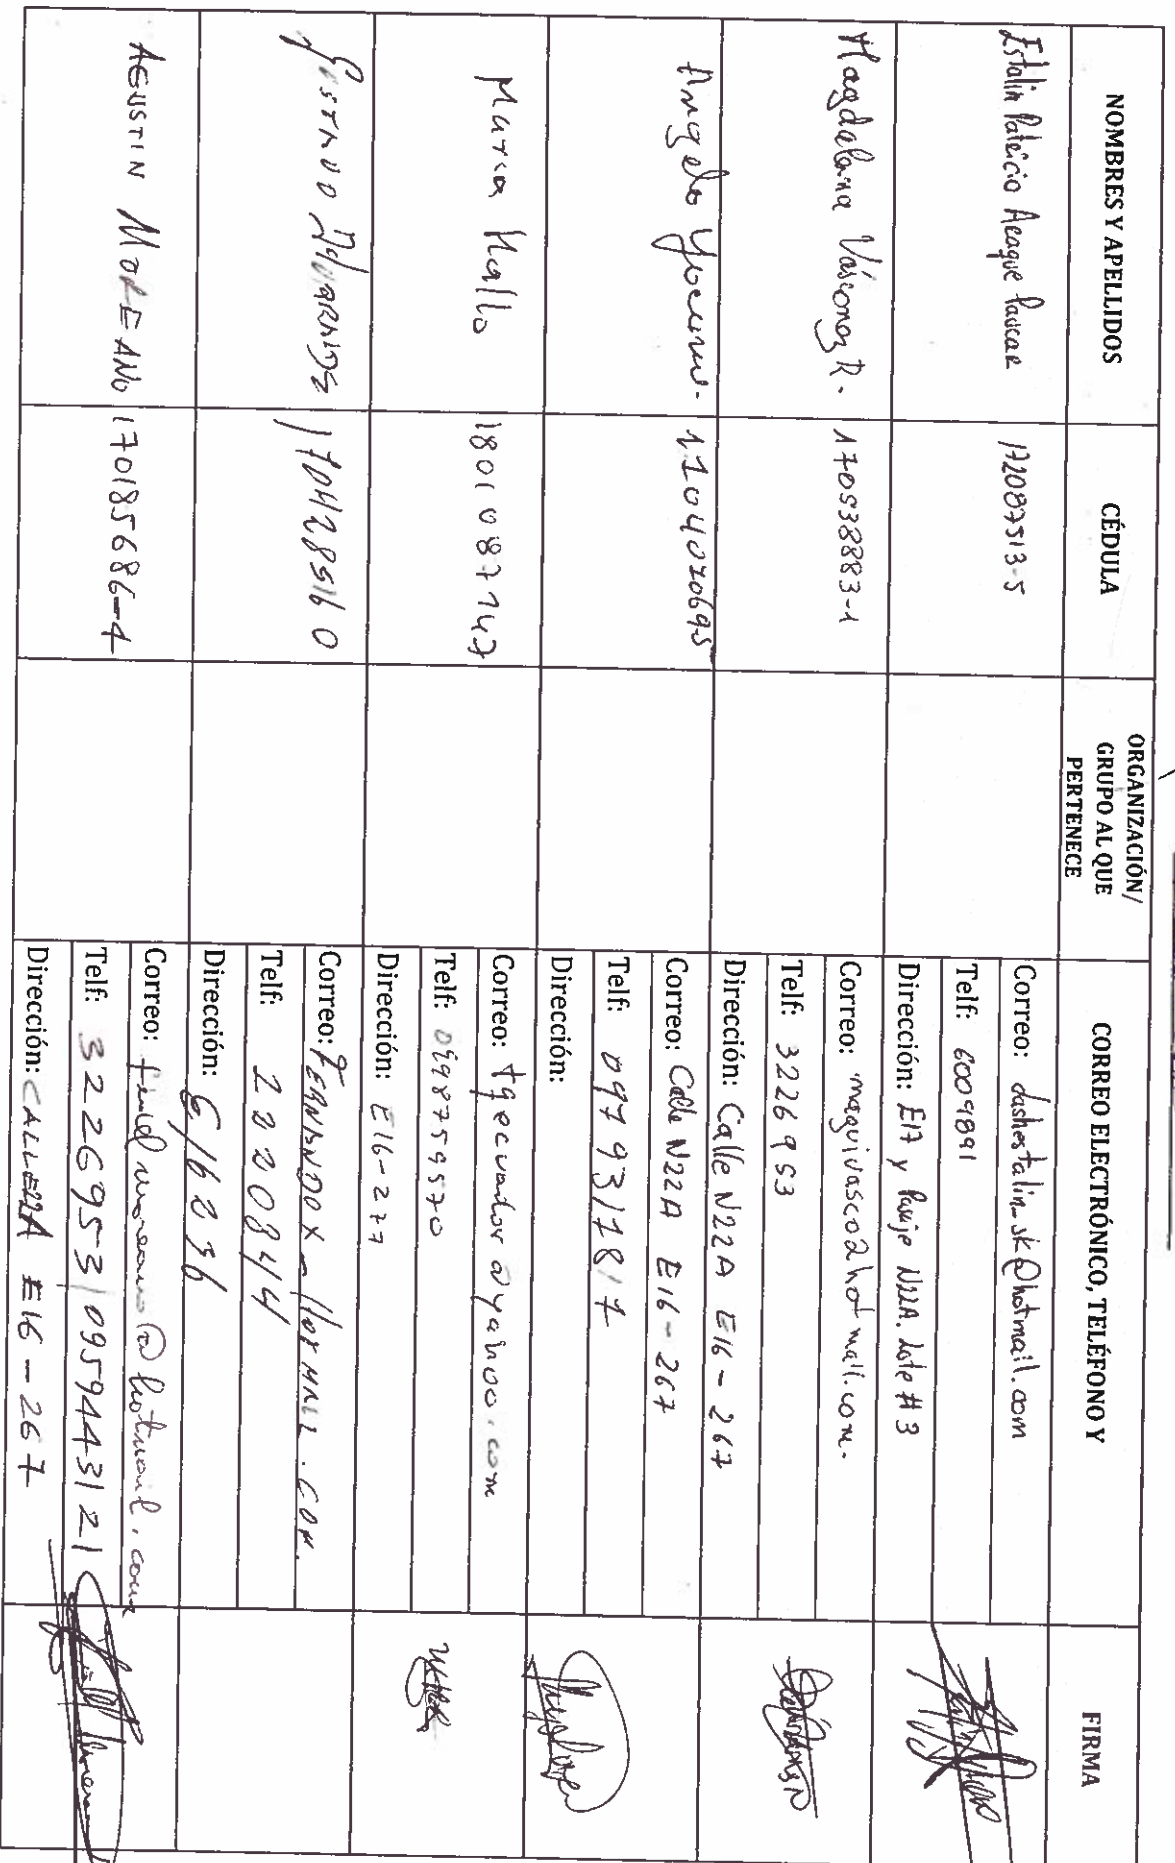 NOMBRES Y APELLIDOS
CÉDULA
ORGANIZACIÓN/
GRUPO AL QUE
PERTENECE
CORREO ELECTRÓNICO, TELÉFONO Y
FIRMA
Estalin Patricio Aeaque Paucar
172087513-5
Correo: dashestalin_sk@hotmail.com
Telf: 6009891
Dirección: E17 y Pasaje N22A. Lote # 3
Magdalena Vásconez R.
170538883-1
Correo: maquivasco2hotmail.com.
Telf: 3226953
Dirección: Calle N22A E16-267
Angelo
1104020695
Correo: Calle N22A E16-267
Telf: 0979317817
Dirección:
Maria Hallo
1801087147
Correo: tqecuador@yahoo.com
Telf: 0998759570
Dirección: E16-277
1704285160
Correo: FERNANDOX - HOTMAIL.COM.
Telf: 2220844
Dirección: E/16236
AGUSTIN MOREANO
170185686-4
Correo: @hotmail.com
Telf: 3226953/0959443121
Dirección: CALLE22A E16-267